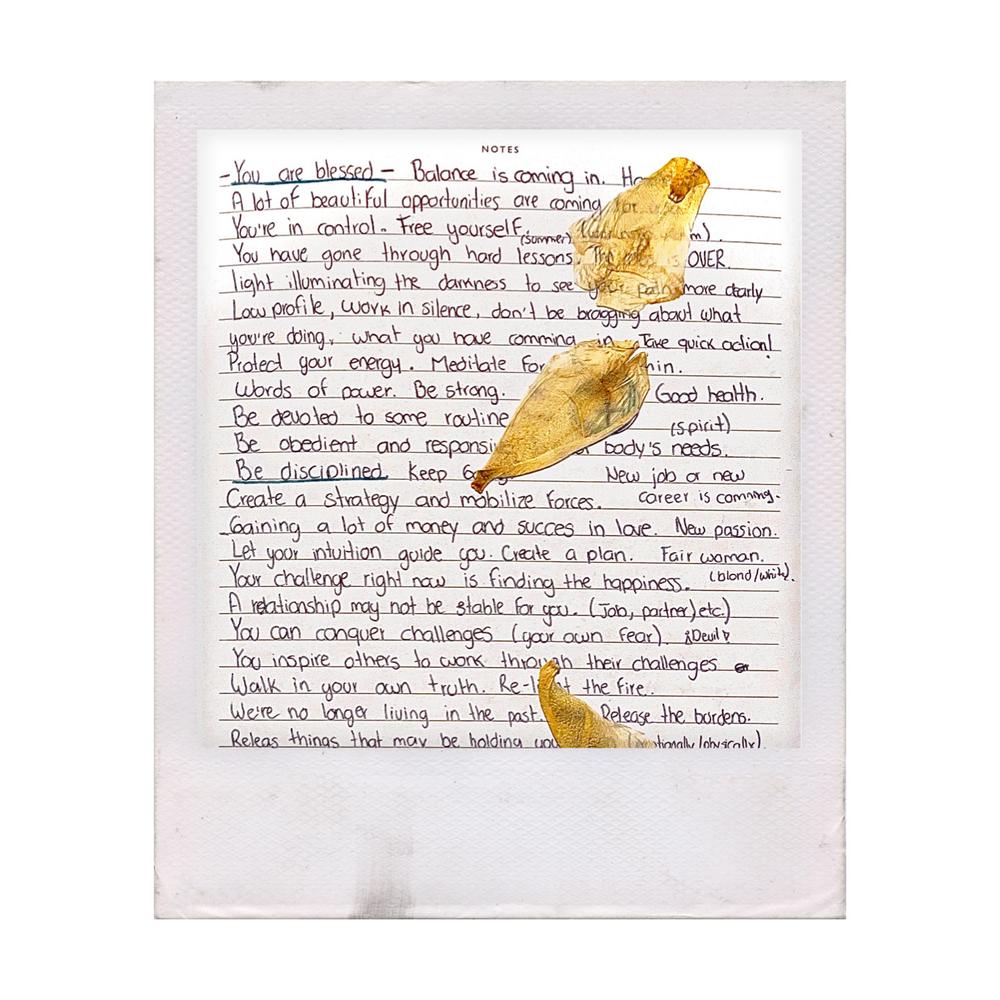 NOTES
- You are blessed - Balance is coming in.
A lot of beautiful opportunities are coming for
You're in control. Free yourself.
(summer)
You have gone through hard lessons. The is OVER.
light illuminating the darkness to see your path more clearly
Low profile, work in silence, don't be bragging about what
you're doing, what you have comming in. Take quick action!
Protect your energy. Meditate for
Words of power. Be strong. Good health.
Be devoted to some routine
(spirit)
Be obedient and body's needs.
Be disciplined. Keep New job or new
Create a strategy and mobilize forces. career is comming.
Gaining a lot of money and succes in love. New passion.
Let your intuition guide you. Create a plan. Fair woman.
(blond/white).
Your challenge right now is finding the happiness.
A relationship may not be stable for you. (Job, partner, etc.)
You can conquer challenges (your own fear). Devil
You inspire others to work through their challenges or
Walk in your own truth. Re-light the fire.
We're no longer living in the past. Release the burdens.
Releas things that may be holding you